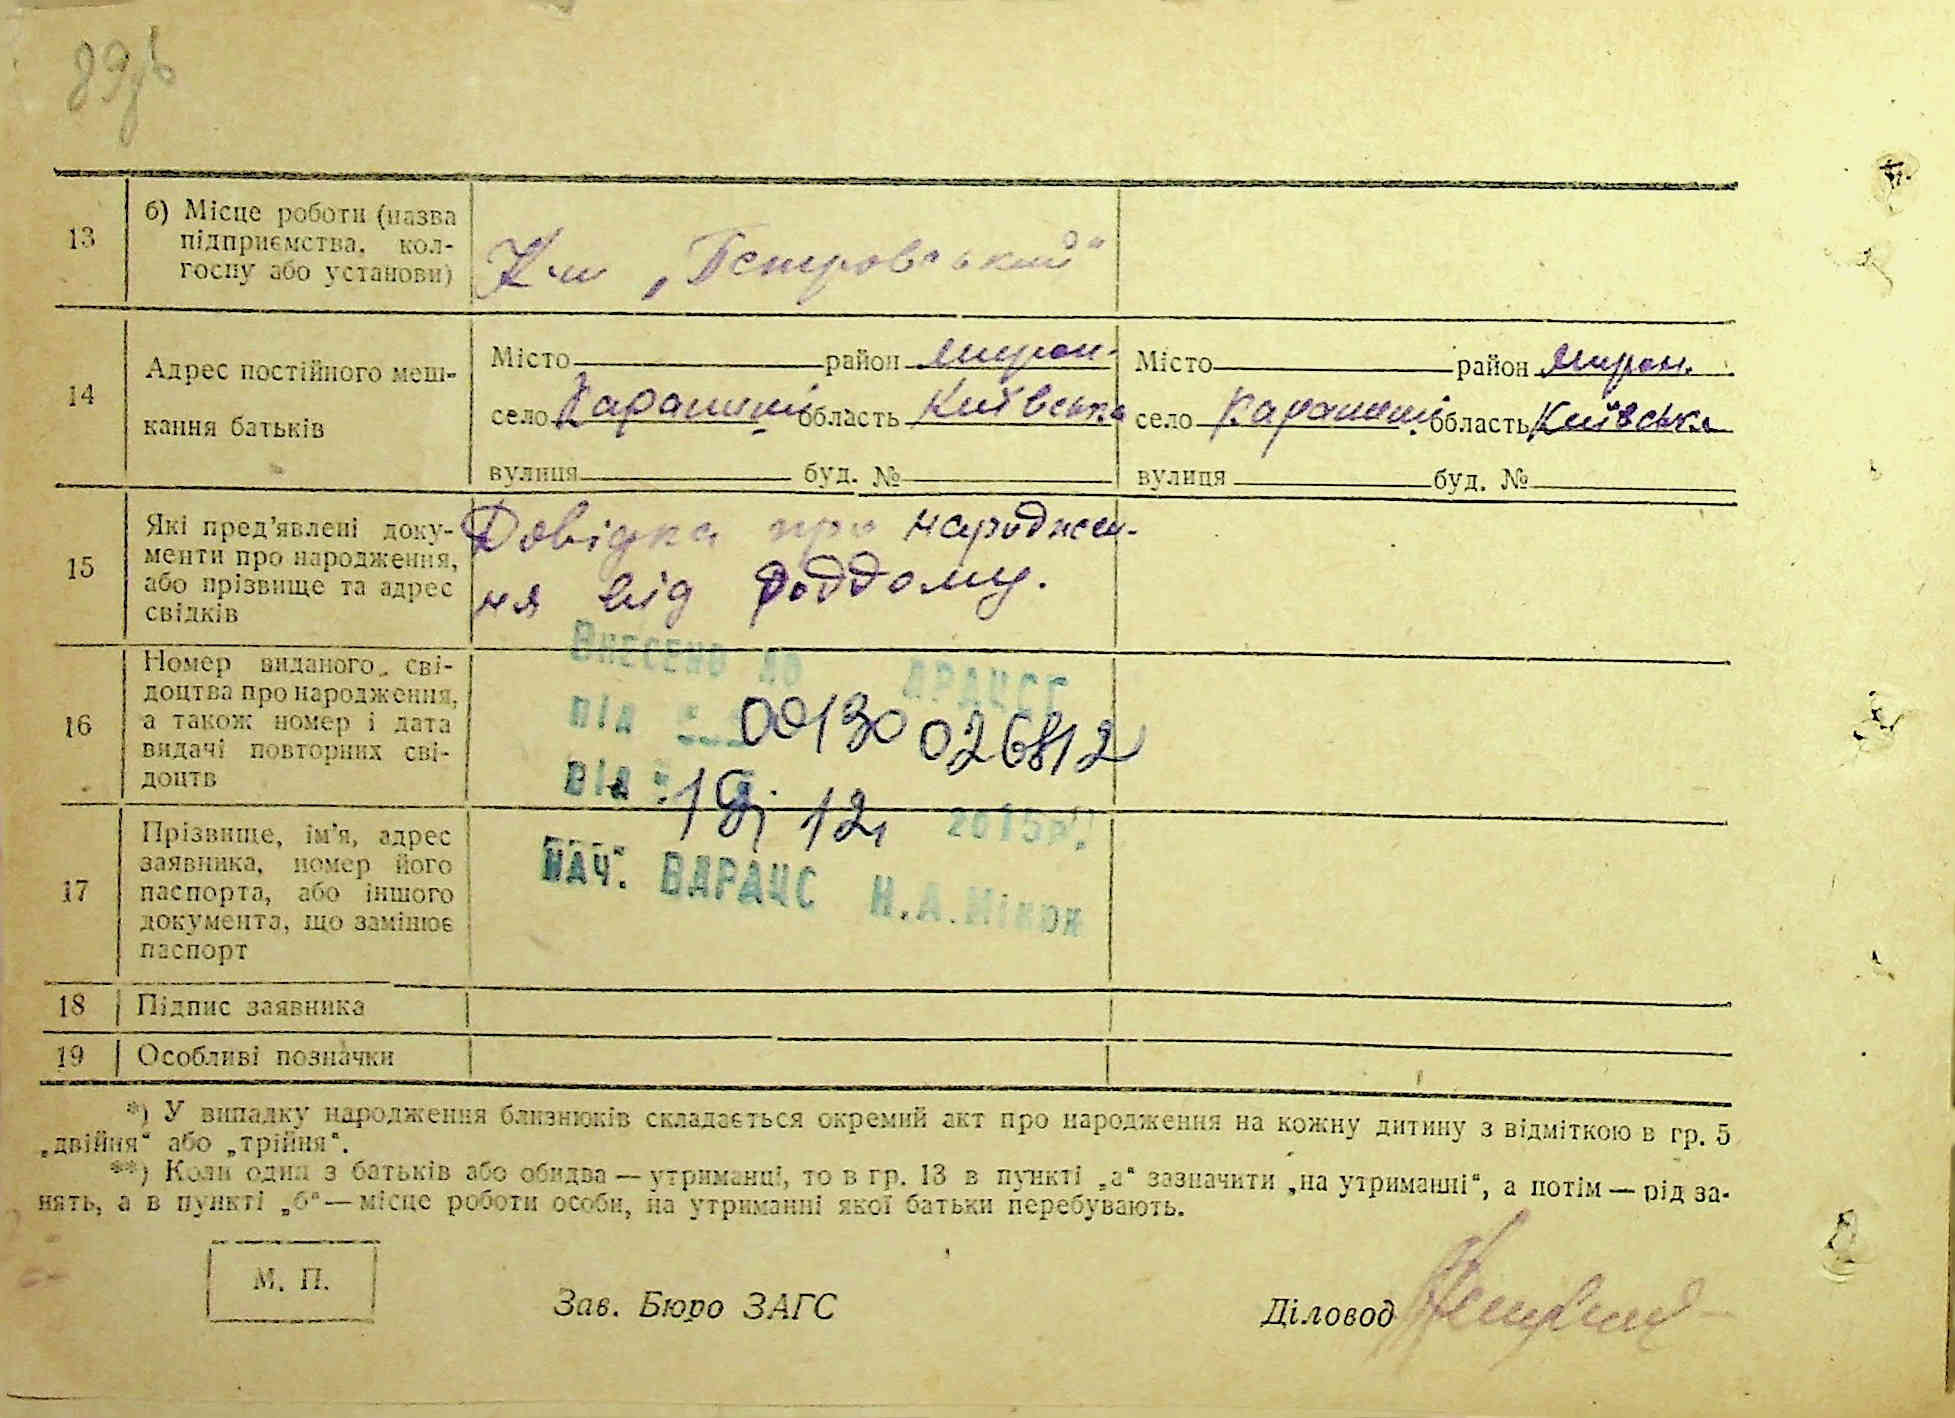 13
б) Місце роботи (назва
підприємства, кол-
госпу або установи)
К-м „Петровський“
14
Адрес постійного меш-
кання батьків
Місто район мирон. Місто район мирон.
село Карапиші область Київська село Карапиші область Київська
вулиця буд. № вулиця буд. №
15
Які пред'явлені доку-
менти про народження,
або прізвище та адрес
свідків
Довідка про народжен-
ня від роддому.
16
Номер виданого сві-
доцтва про народження,
а також номер і дата
видачі повторних сві-
доцтв
Внесено до ДРАЦСГ
під 00130026812
від 19. 12, 2015р.
Нач. ВДРАЦС Н.А.
17
Прізвище, ім'я, адрес
заявника, номер його
паспорта, або іншого
документа, що замінює
паспорт
18 Підпис заявника
19 Особливі позначки
*) У випадку народження близнюків складається окремий акт про народження на кожну дитину з відміткою в гр. 5
„двійня“ або „трійня“.
**) Коли один з батьків або обидва — утриманці, то в гр. 13 в пункті „а“ зазначити „на утриманні“, а потім — рід за-
нять, а в пункті „б“ — місце роботи особи, на утриманні якої батьки перебувають.
М. П.
Зав. Бюро ЗАГС
Діловод